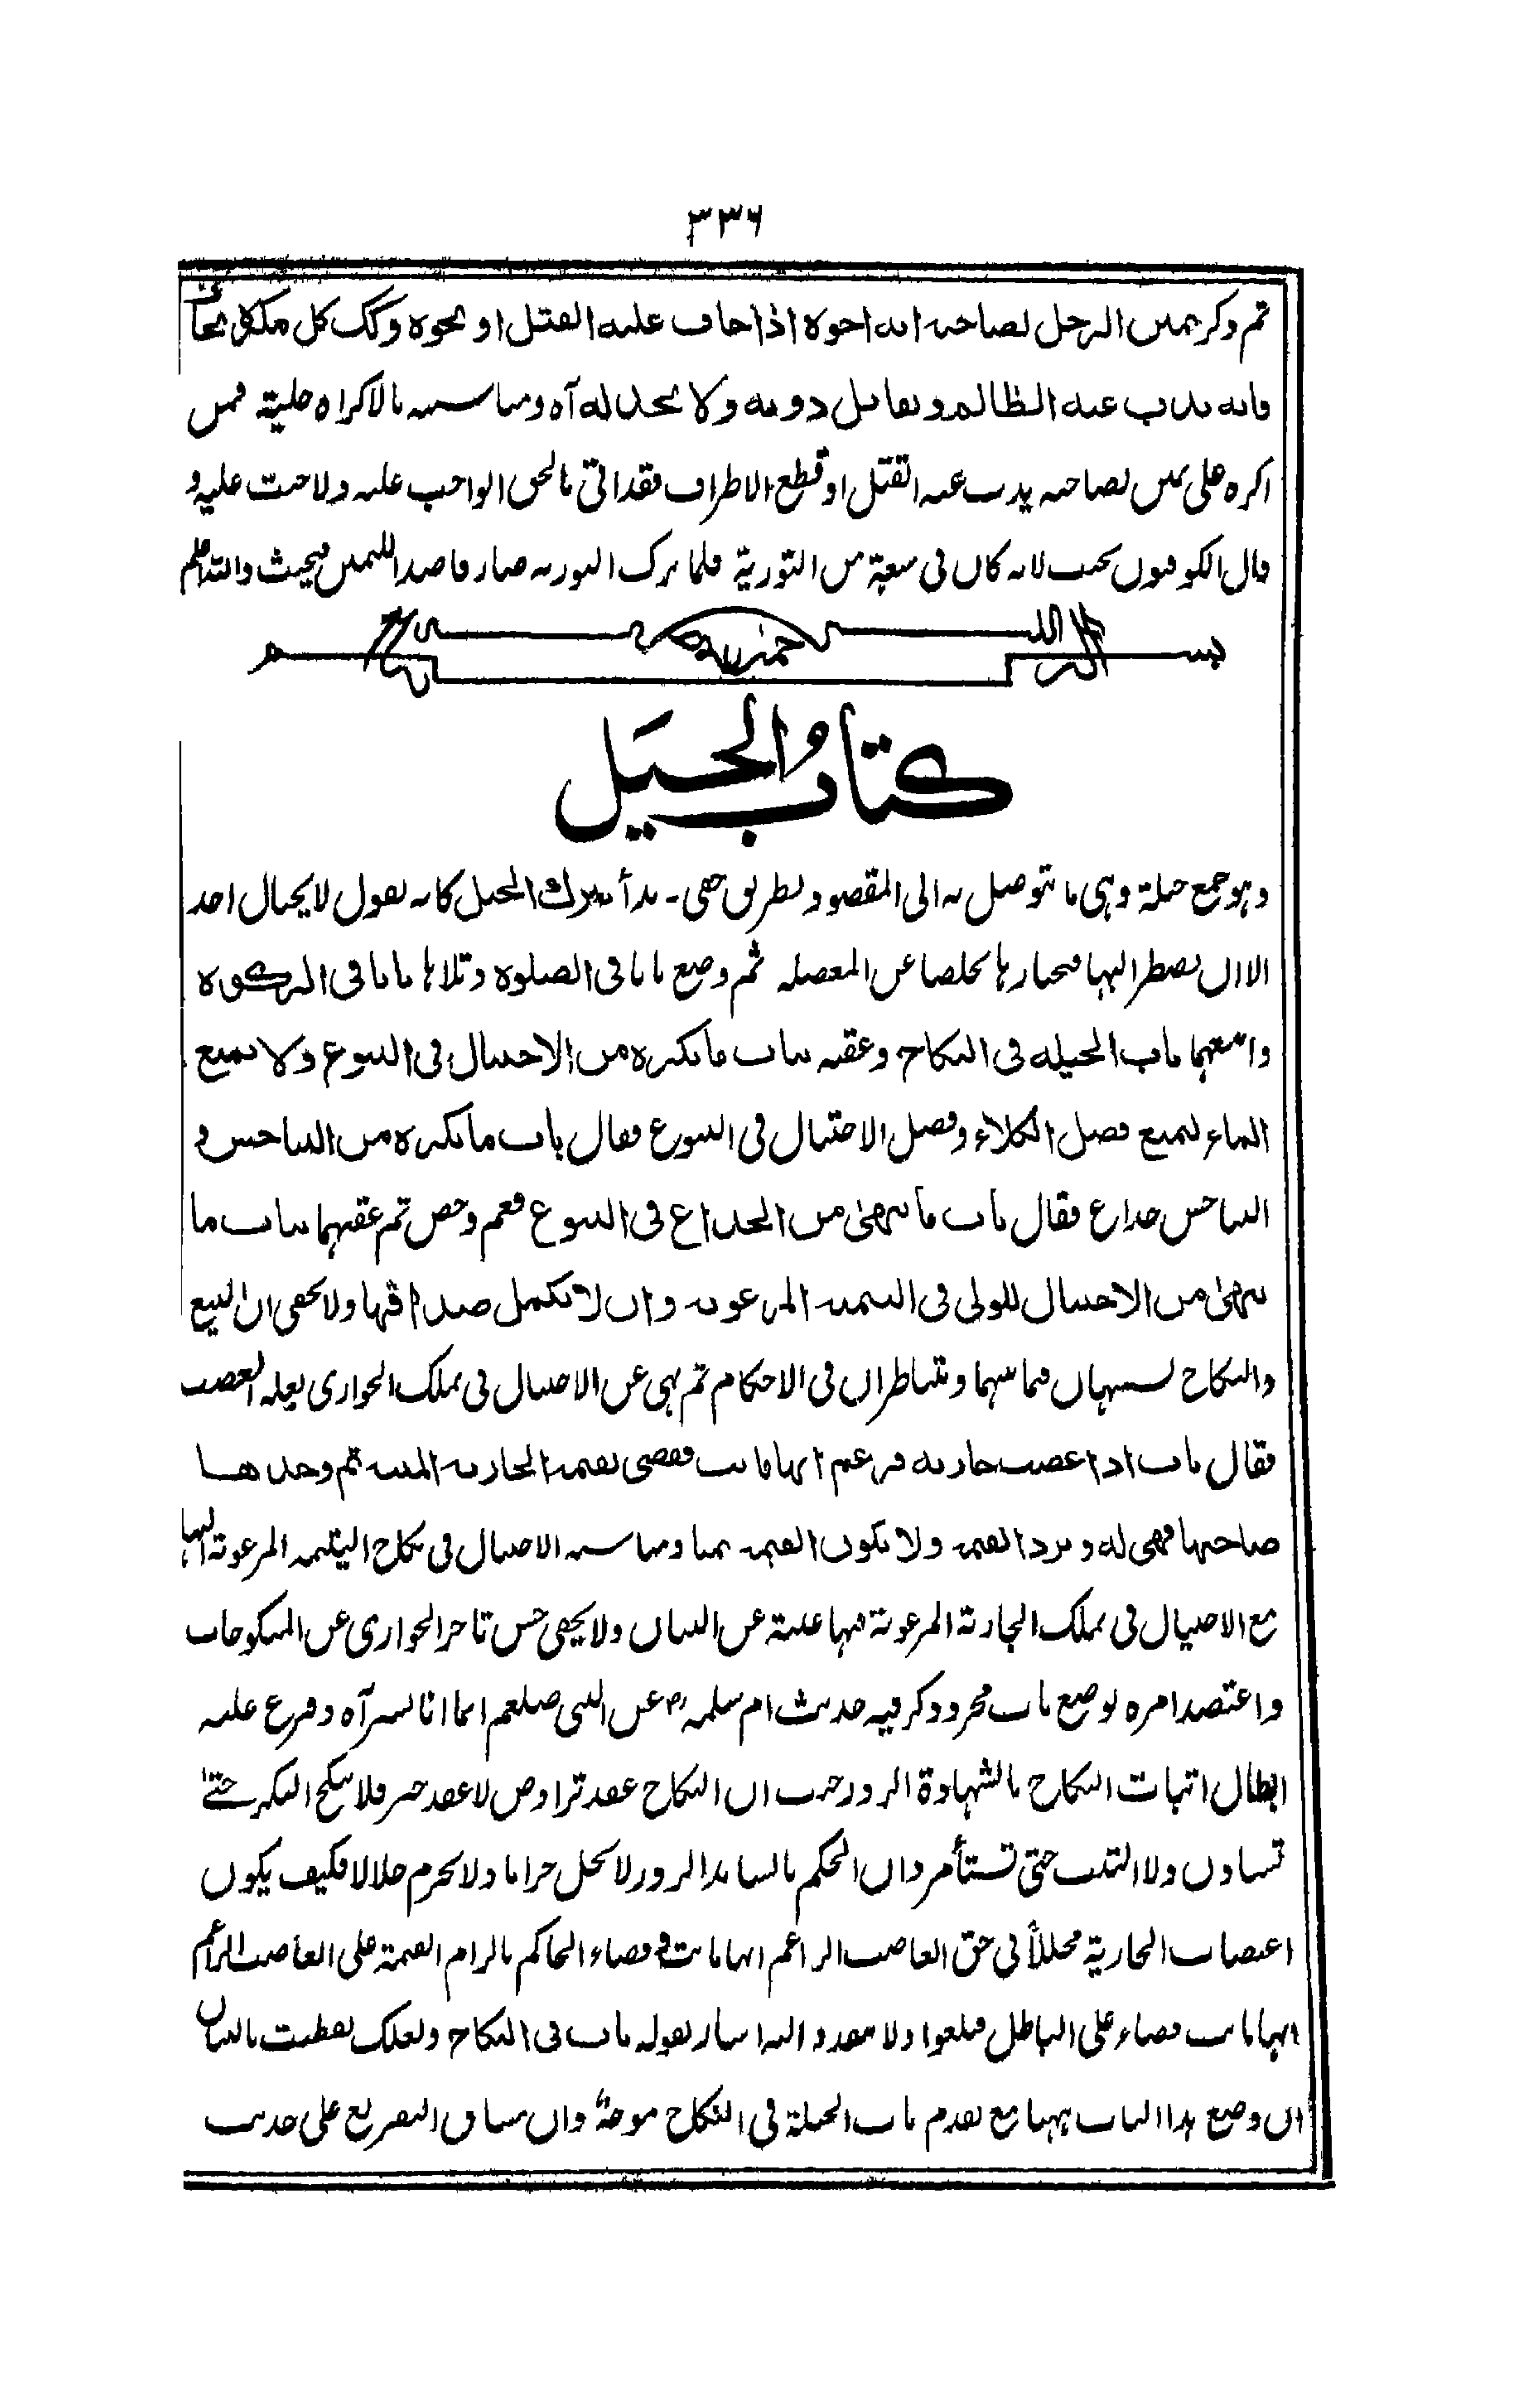 ٣٣٦
ثم ذكر يمين الرجل لصاحبه انه اخوه اذا خاف عليه القتل او نحوه وكك كل مكره يخاف
فانه يذب عنه الظالم ويقاتل دونه ولا يخذله آه ومناسبته بالاكراه جلية فمن
اكره على يمين لصاحبه يذب عنه القتل او قطع الاطراف فقد اتى بالحق الواجب عليه ولا حنث عليه و
قال الكوفيون يحنث لانه كان فى سعة من التورية فلما ترك التورية صار قاصدا لليمين فيحنث والله اعلم
بسم الله الرحمن الرحيم
كتاب الحيل
وهو جمع حيلة وهى ما يتوصل به الى المقصود بطريق خفى ـ بدأ بترك الحيل كانه يقول لا يحتال احد
الا ان يضطر اليها فيختارها تخلصا عن المعضلة ثم وضع بابا فى الصلوة وتلاها بابا فى الزكوة
واتبعهما باب الحيلة فى النكاح وعقبه بباب ما يكره من الاحتيال فى البيوع ولا يمنع
الماء ليمنع فضل الكلاء وفصل الاحتيال فى البيوع فقال باب ما يكره من التناجش و
التناجش خداع فقال باب ما ينهى من الخداع فى البيوع فعم وخص ثم عقبهما بباب ما
ينهى من الاحتيال للولى فى اليتيمة المرغوبة وان لا يكمل صداقها ولا يخفى ان البيع
والنكاح يتشبهان فيما بينهما ويتناظران فى الاحكام ثم نهى عن الاحتيال فى تملك الجوارى بعلة الغصب
فقال باب اذا غصب جارية فزعم انها ماتت فقضى بقيمة الجارية الميتة ثم وجدها
صاحبها فهى له ويرد القيمة ولا تكون القيمة ثمنا ومناسبة الاحتيال فى نكاح اليتيمة المرغوبة اليها
مع الاحتيال فى تملك الجارية المرغوبة فيها غنية عن البيان ولا يخفى حسن تاخر الجوارى عن المنكوحات
واعتضد امره بوضع باب مجرد وذكر فيه حديث ام سلمة رض عن النبى صلعم انما انا بشر آه وفرع عليه
ابطال اثبات النكاح بالشهادة الزور حيث ان النكاح عقد تراض لا عقد جبر فلا تنكح البكر حتى
تستاذن ولا الثيب حتى تستأمر وان الحكم بالشاهد الزور لا يحل حراما ولا يحرم حلالا فكيف يكون
اغتصاب الجارية محللاً فى حق الغاصب الزاعم انها ماتت وقضاء الحاكم بالزام القيمة على الغاصب الزاعم
انها ماتت قضاء على الباطل فيلغوا ولا ينفذ والیه اشار بقوله باب فى النكاح ولعلك تفطنت بالبيان
ان وضع هذا الباب ههنا مع تقدم باب الحيلة فى النكاح موجهٌ وان سياق التفريع على حديث